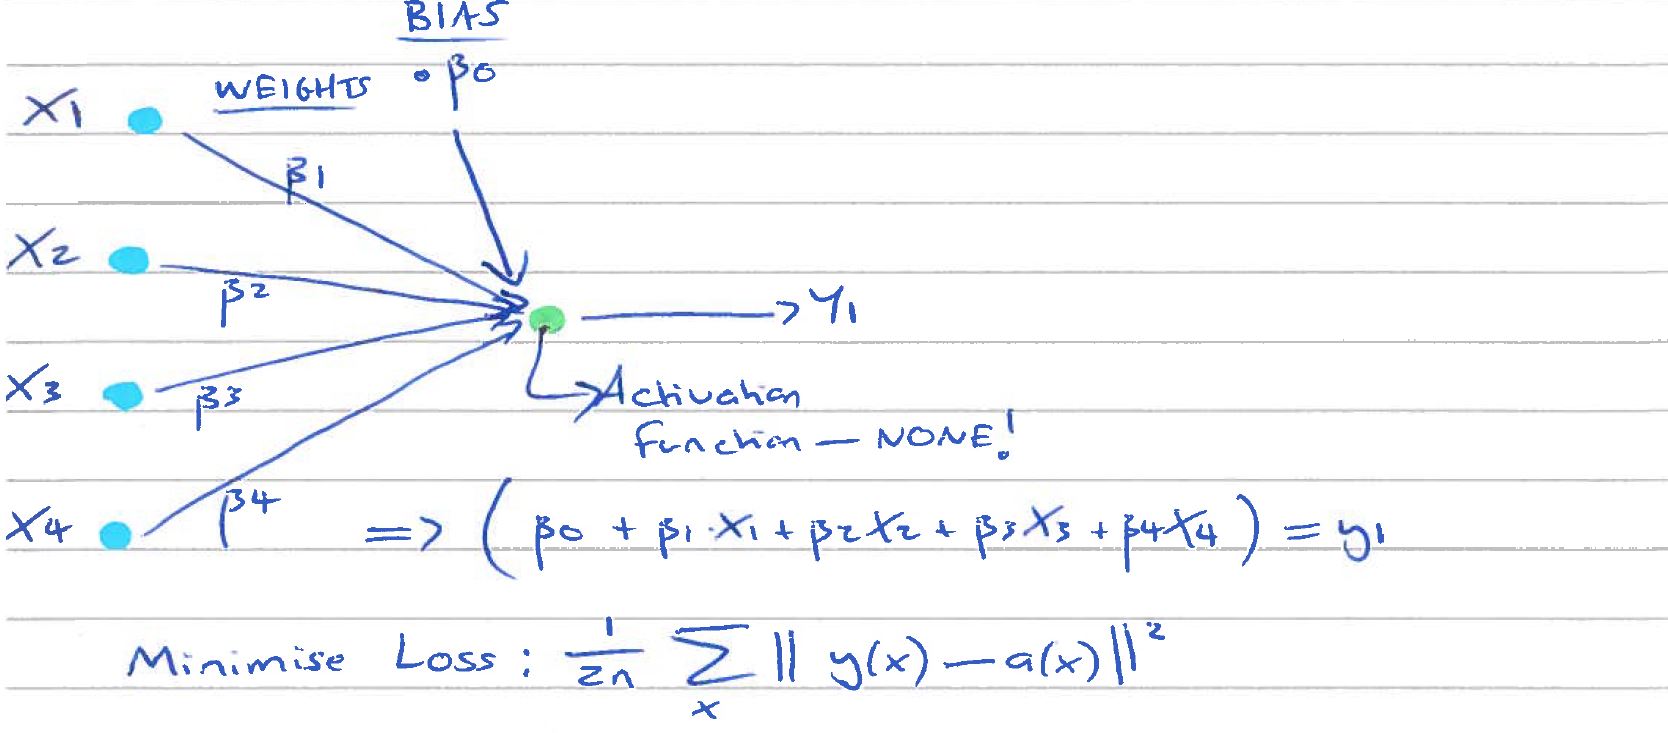 BIAS
• β0
WEIGHTS
X1
β1
X2
β2
Y1
X3
β3
Activation
function — NONE!
X4
β4
=> ( β0 + β1·X1 + β2X2 + β3X3 + β4X4 ) = y1
Minimise Loss : 1/2n ∑x || y(x) — a(x) ||²